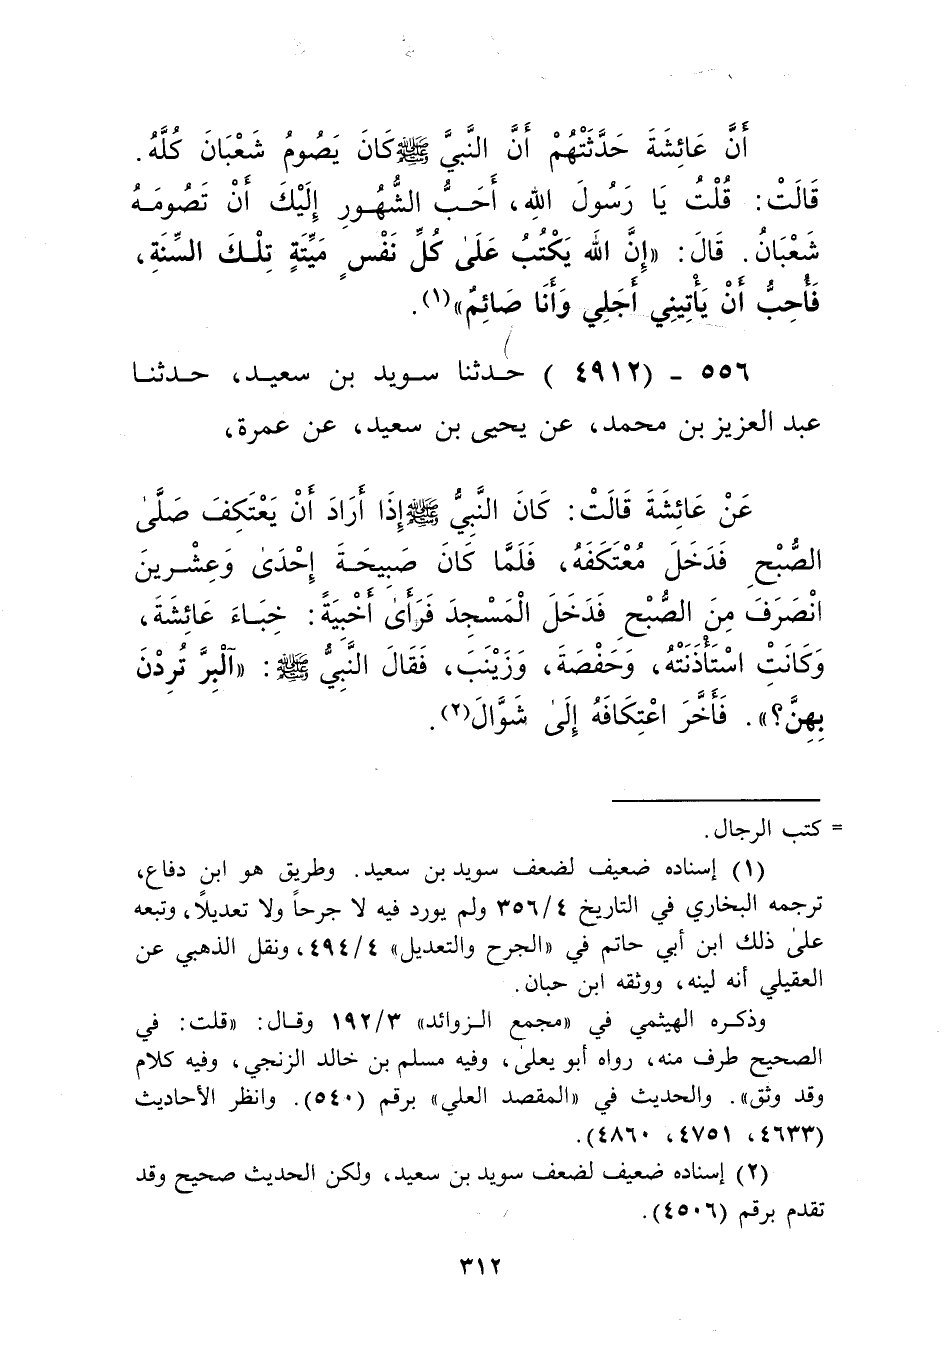 أَنَّ عَائِشَةَ حَدَّثَتْهُمْ أَنَّ النَّبِيَّ ﷺ كَانَ يَصُومُ شَعْبَانَ كُلَّهُ.
قَالَتْ: قُلْتُ يَا رَسُولَ اللهِ، أَحَبُّ الشُّهُورِ إِلَيْكَ أَنْ تَصُومَهُ
شَعْبَانُ. قَالَ: «إِنَّ اللهَ يَكْتُبُ عَلَىٰ كُلِّ نَفْسٍ مَيِّتَةٍ تِلْكَ السَّنَةِ،
فَأُحِبُّ أَنْ يَأْتِينِي أَجَلِي وَأَنَا صَائِمٌ»(١).
٥٥٦ - (٤٩١٢) حدثنا سويد بن سعيد، حدثنا
عبد العزيز بن محمد، عن يحيى بن سعيد، عن عمرة،
عَنْ عَائِشَةَ قَالَتْ: كَانَ النَّبِيُّ ﷺ إِذَا أَرَادَ أَنْ يَعْتَكِفَ صَلَّىٰ
الصُّبْحِ فَدَخَلَ مُعْتَكَفَهُ، فَلَمَّا كَانَ صَبِيحَةَ إِحْدَىٰ وَعِشْرِينَ
انْصَرَفَ مِنَ الصُّبْحِ فَدَخَلَ الْمَسْجِدَ فَرَأَىٰ أَخْبِيَةً: خِبَاءَ عَائِشَةَ،
وَكَانَتِ اسْتَأْذَنَتْهُ، وَحَفْصَةَ، وَزَيْنَبَ، فَقَالَ النَّبِيُّ ﷺ: «آلْبِرَّ تُرِدْنَ
بِهِنَّ؟». فَأَخَّرَ اعْتِكَافَهُ إِلَىٰ شَوَّالَ(٢).
= كتب الرجال.
(١) إسناده ضعيف لضعف سويد بن سعيد. وطريق هو ابن دفاع،
ترجمه البخاري في التاريخ ٣٥٦/٤ ولم يورد فيه لا جرحاً ولا تعديلاً، وتبعه
علىٰ ذلك ابن أبي حاتم في «الجرح والتعديل» ٤٩٤/٤، ونقل الذهبي عن
العقيلي أنه لينه، ووثقه ابن حبان.
وذكره الهيثمي في «مجمع الزوائد» ١٩٢/٣ وقال: «قلت: في
الصحيح طرف منه، رواه أبو يعلىٰ، وفيه مسلم بن خالد الزنجي، وفيه كلام
وقد وثق». والحديث في «المقصد العلي» برقم (٥٤٠). وانظر الأحاديث
(٤٦٣٣، ٤٧٥١، ٤٨٦٠).
(٢) إسناده ضعيف لضعف سويد بن سعيد، ولكن الحديث صحيح وقد
تقدم برقم (٤٥٠٦).
٣١٢